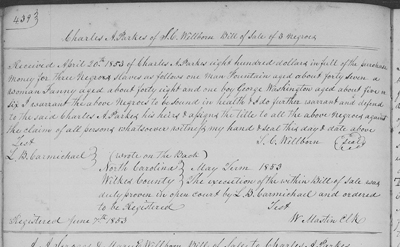 439
Charles A. Parkes of S.C. Wellborn Bill of Sale of 3 negroes
Received April 20th 1853 of Charles A. Parks eight hundred dollars in full of the purchase
money for three Negroes slaves as follows one man Fountain aged about forty seven a
woman Fanny aged about forty eight and one boy George Washington aged about five or
six I warrant the above Negroes to be sound in health & I do further warrant and defend
to the said Charles A Parkes his heirs & assigns the title to all the above Negroes against
the claims of all persons whatsoever witness my hand & seal this day & date above
Test S. C. Wellborn (Seal)
L. B. Carmichael (wrote on the Back)
North Carolina May Term 1853
Wilkes County The execution of the within Bill of Sale was
duly proven in open court by L. B. Carmichael and ordered
to be Registered Test
Registered June 7th 1853 W. Mastin Clk
Wellborn Bill of Sale to Charles A. Parkes